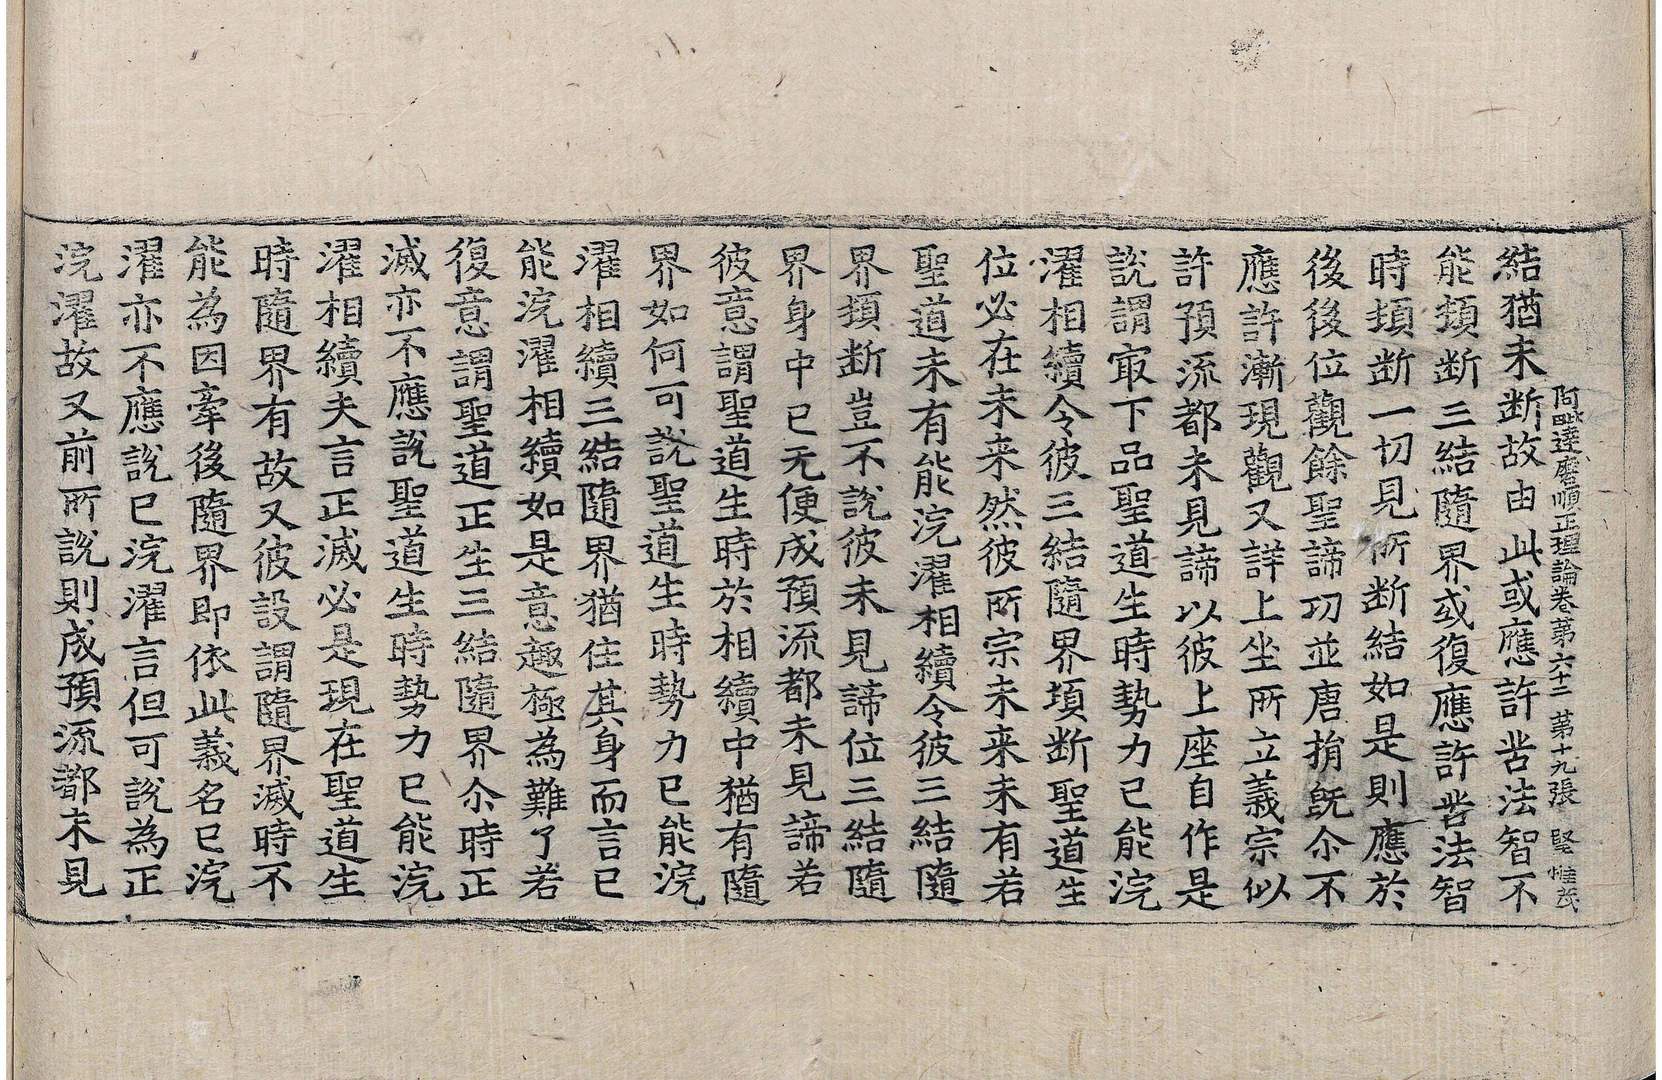 阿毗達磨順正理論卷第六十二 第十九張 堅 惟茂
結猶未断故由此或應許苦法智不
能頓断三結隨界或復應許苦法智
時頓断一切見所断結如是則應於
後後位觀餘聖諦功並唐捐旣尒不
應許漸現觀又詳上坐所立義宗似
許預流都未見諦以彼上座自作是
說謂㝡下品聖道生時勢力已能浣
濯相續令彼三結隨界頓断聖道生
位必在未来然彼所宗未来未有若
聖道未有能浣濯相續令彼三結隨
界頓断豈不說彼未見諦位三結隨
界身中已无便成預流都未見諦若
彼意謂聖道生時於相續中猶有隨
界如何可說聖道生時勢力已能浣
濯相續三結隨界猶住其身而言已
能浣濯相續如是意趣極為難了若
復意謂聖道正生三結隨界尒時正
滅亦不應說聖道生時勢力已能浣
濯相續夫言正滅必是現在聖道生
時隨界有故又彼設謂隨界滅時不
能為因牽後隨界即依此義名已浣
濯亦不應說已浣濯言但可說為正
浣濯故又前所說則成預流都未見